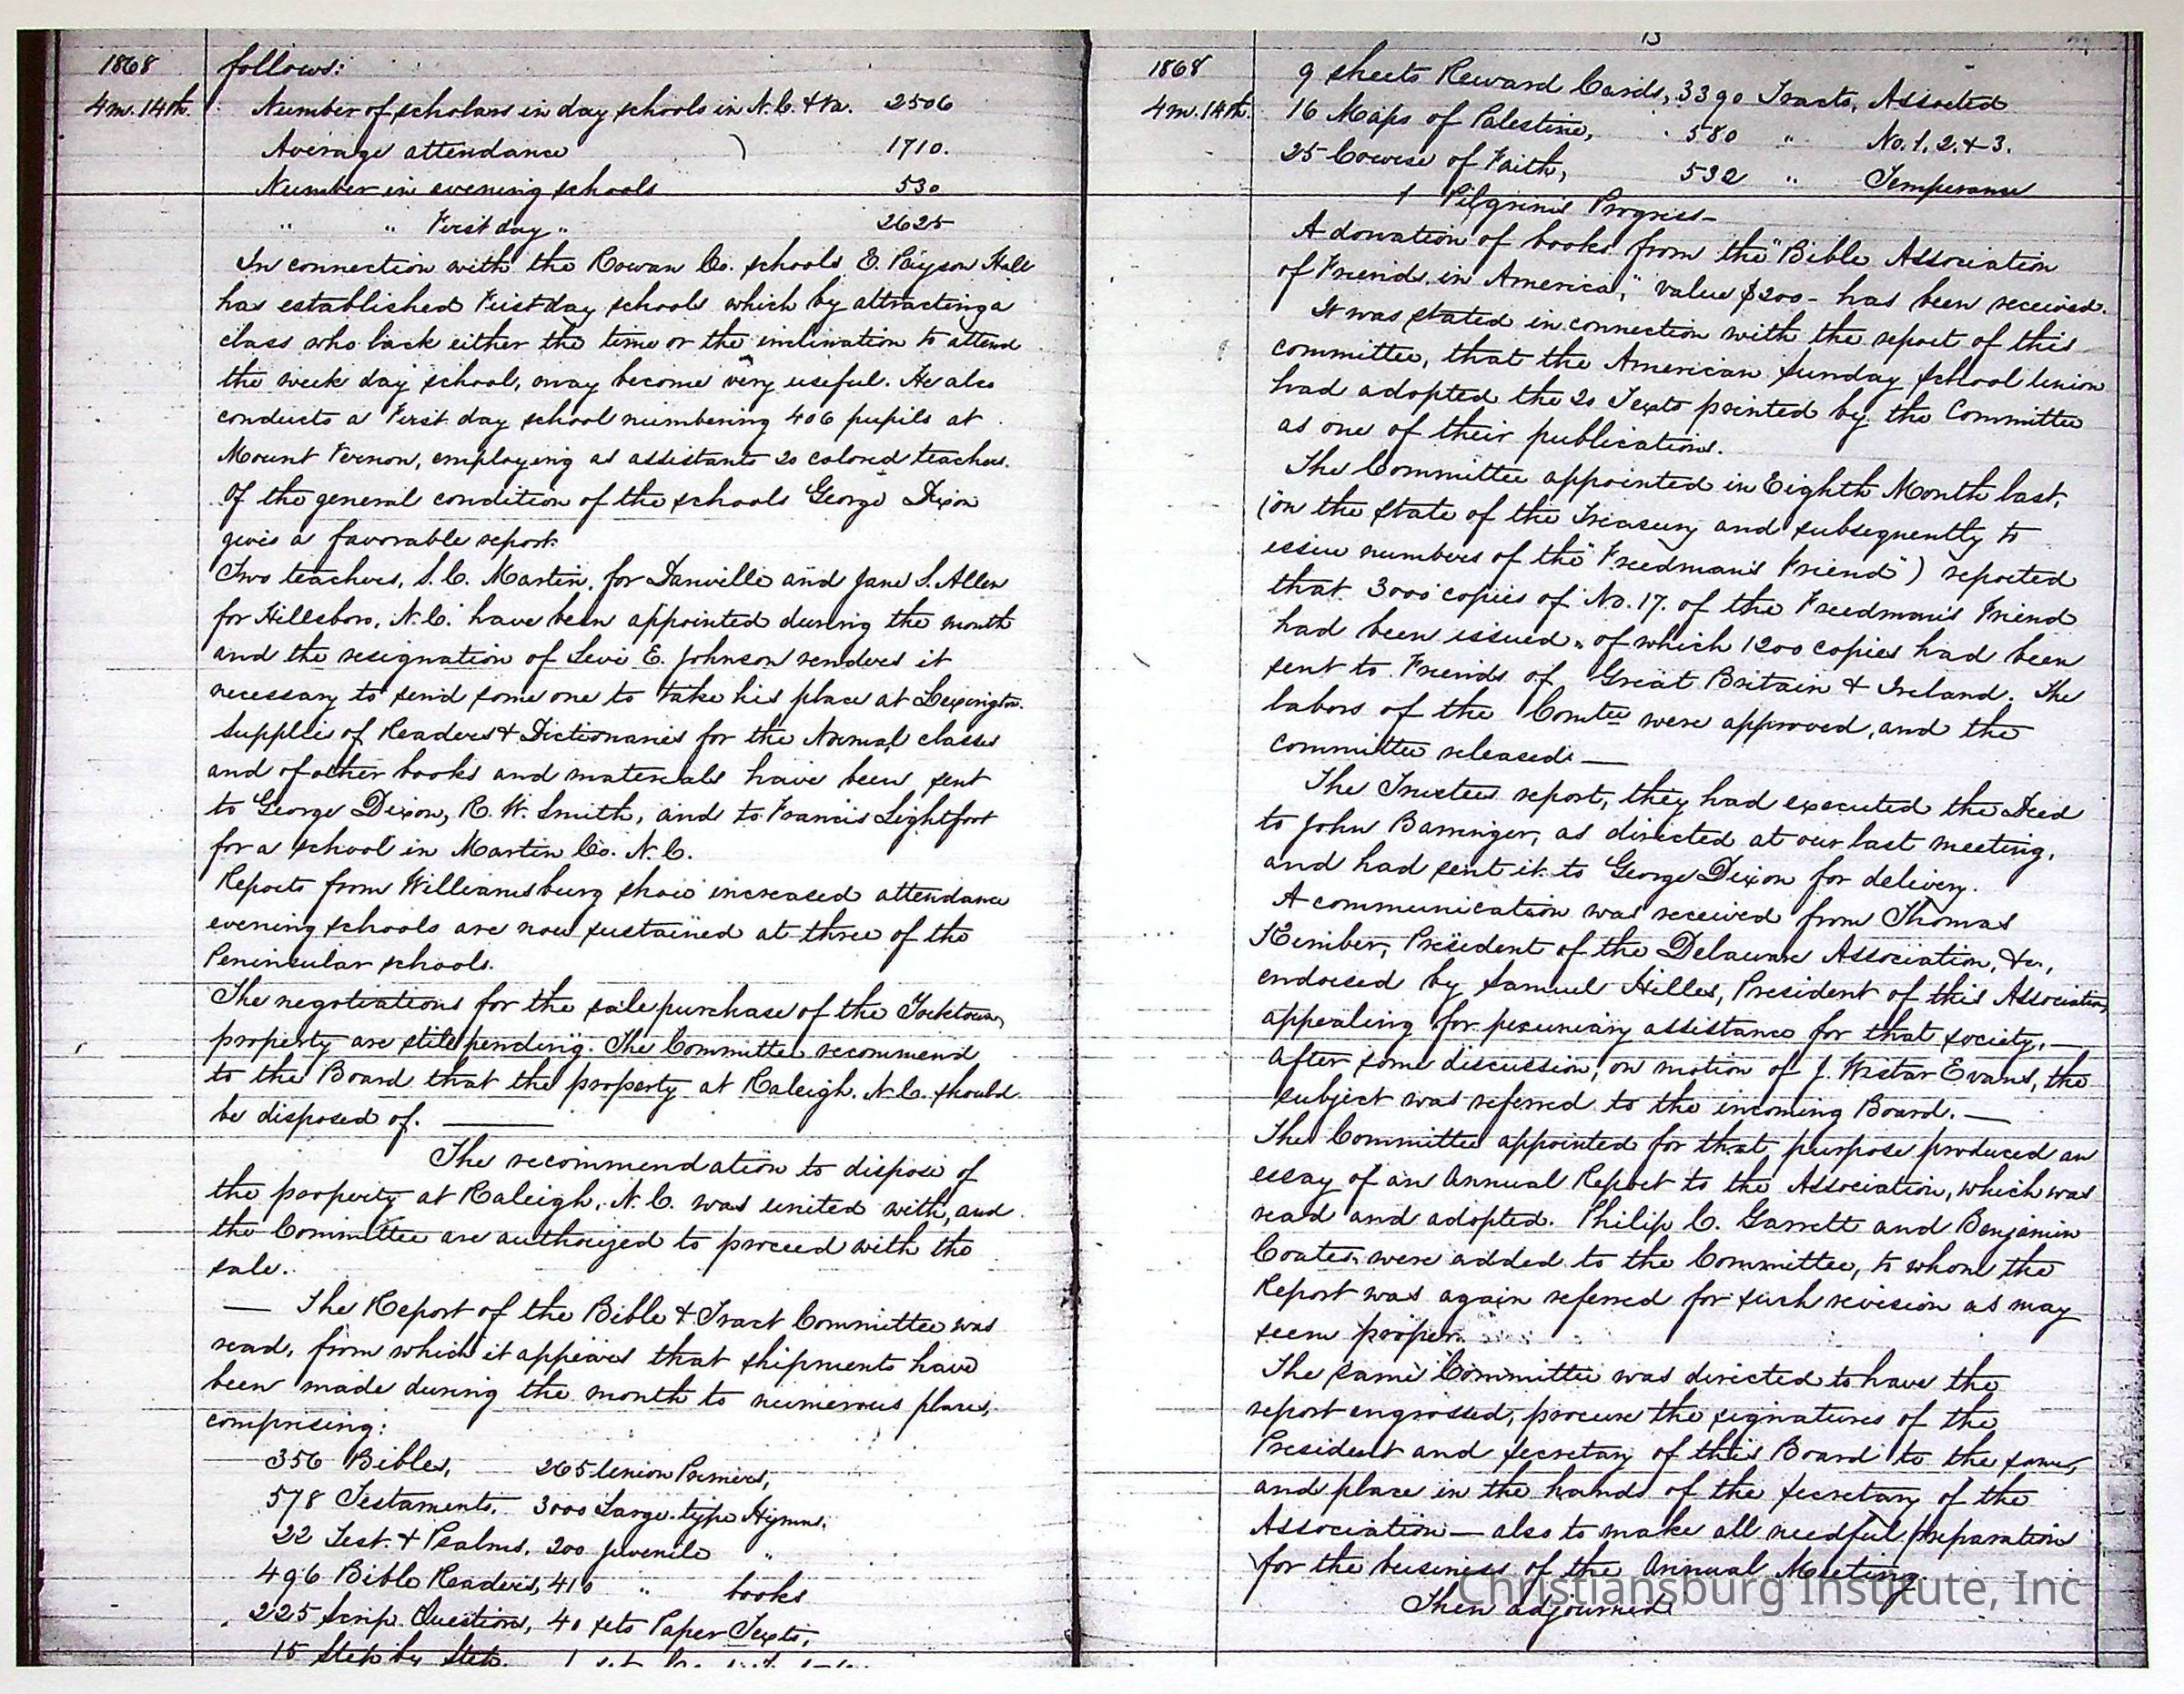 1868
4m. 14th.
follows:
Number of scholars in day schools in N.C. & Va. 2506
Average attendance 1710.
Number in evening schools 530
" " First day " 2625
In connection with the Rowan Co. schools E. Payson Hall
has established First day schools which by attracting a
class who lack either the time or the inclination to attend
the week day school, may become very useful. He also
conducts a First day school numbering 406 pupils at
Mount Vernon, employing as assistants 20 colored teachers.
Of the general condition of the schools George Dixon
gives a favorable report.
Two teachers, S. C. Martin, for Danville and Jane S. Allen
for Hillsboro, N.C. have been appointed during the month
and the resignation of Levi E. Johnson renders it
necessary to send some one to take his place at Lexington.
Supplies of Readers & Dictionaries for the Normal classes
and of other books and materials have been sent
to George Dixon, R. W. Smith, and to Francis Lightfoot
for a school in Martin Co. N.C.
Reports from Williamsburg show increased attendance
evening schools are now sustained at three of the
Peninsular schools.
The negotiations for the sale purchase of the Yorktown
property are still pending. The Committee recommend
to the Board that the property at Raleigh. N.C. should
be disposed of.
The recommendation to dispose of
the property at Raleigh, N.C. was united with, and
the Committee are authorized to proceed with the
sale.
— The Report of the Bible & Tract Committee was
read, from which it appears that shipments have
been made during the month to numerous places,
comprising:
356 Bibles, 265 Union Primers,
578 Testaments, 3000 Large type Hymns,
22 Test. & Psalms, 200 juvenile "
496 Bible Readers, 410 " books
225 Scrip. Questions, 40 sets Paper Texts,
15 Step by Step. 1
13
1868
4m. 14th.
9 sheets Reward Cards, 3390 Tracts, Assorted
16 Maps of Palestine, 580 " No. 1. 2. & 3.
25 Course of Faith, 532 " Temperance
1 Pilgrim's Progress —
A donation of books from the "Bible Association
of Friends in America," value $200 - has been received.
It was stated in connection with the report of this
committee, that the American Sunday School Union
had adopted the 20 Texts printed by the Committee
as one of their publications.
The Committee appointed in Eighth Month last,
(on the state of the Treasury and subsequently to
issue numbers of the "Freedman's Friend") reported
that 3000 copies of No. 17. of the Freedman's Friend
had been issued, of which 1200 copies had been
sent to Friends of Great Britain & Ireland. The
labors of the Comtee were approved, and the
committee released. —
The Trustees report, they had executed the Deed
to John Barringer, as directed at our last meeting,
and had sent it to George Dixon for delivery.
A communication was received from Thomas
Kimber, President of the Delaware Association, &c.,
endorsed by Samuel Hilles, President of this Association,
appealing for pecuniary assistance for that society. —
After some discussion, on motion of J. Wistar Evans, the
subject was referred to the incoming Board. —
The Committee appointed for that purpose produced an
essay of an Annual Report to the Association, which was
read and adopted. Philip C. Garrett and Benjamin
Coates were added to the Committee, to whom the
Report was again referred for such revision as may
seem proper.
The same Committee was directed to have the
report engrossed, procure the signatures of the
President and Secretary of this Board to the same,
and place in the hands of the Secretary of the
Association — also to make all needful preparation
for the business of the Annual Meeting.
Then adjourned.
Christiansburg Institute, Inc